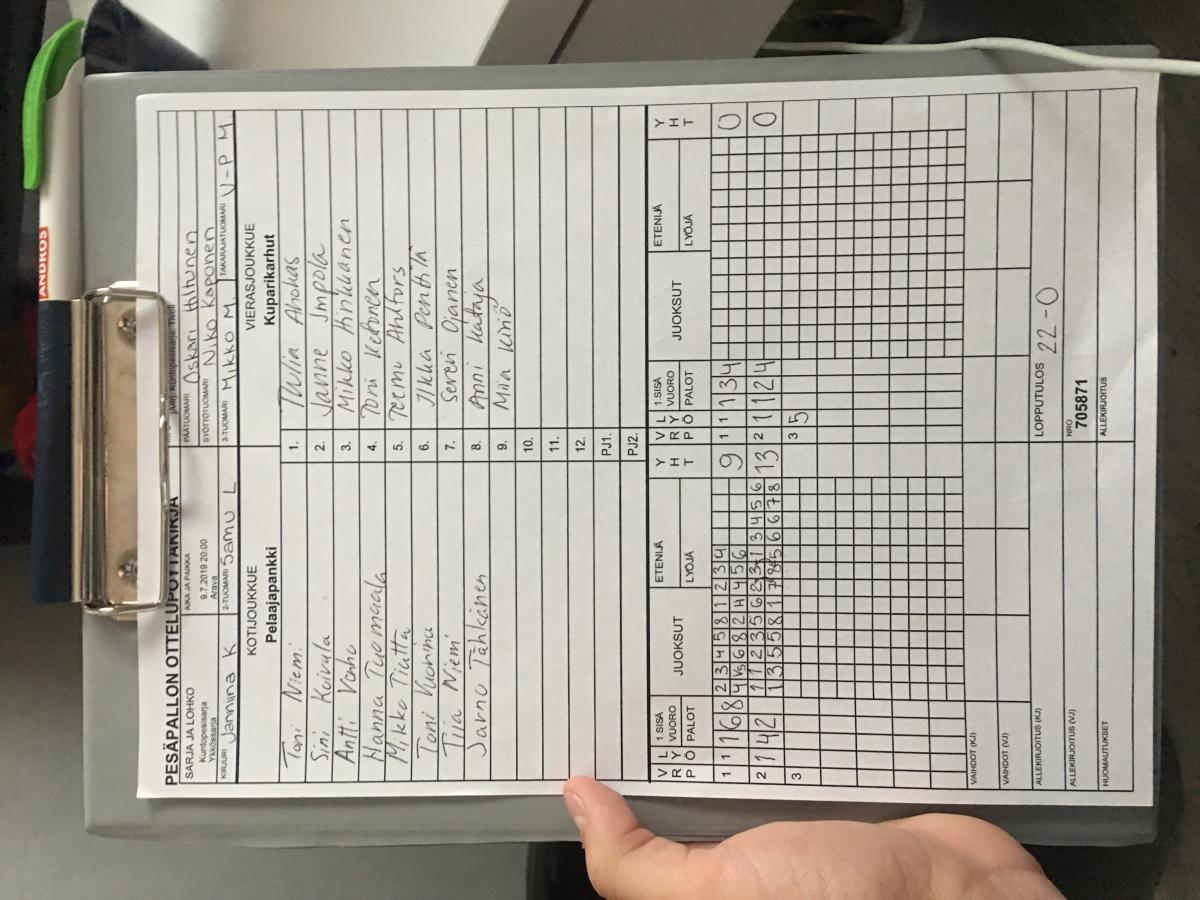 ANDROS
PESÄPALLON OTTELUPÖYTÄKIRJA
SARJA JA LOHKO
Kuntopesisarja
Ykkössarja
AIKA JA PAIKKA
9.7.2019 20:00
Arava
PÄÄTUOMARI Oskari Hiltunen
SYÖTTÖTUOMARI Niko Kaponen
KIRJURI Janniina K
2-TUOMARI Samu L
3-TUOMARI Mikko M
TAKARAJATUOMARI V-P M
KOTIJOUKKUE
Pelaajapankki
VIERASJOUKKUE
Kuparikarhut
Toni Niemi 1. Tulia Ahokas
Sini Koivula 2. Janne Impola
Antti Vanho 3. Mikko Hinkkanen
Hanna Tuomaala 4. Toni Ketonen
Mikko Tiutta 5. Teemu Ahlfors
Toni Vuorinu 6. Ilkka Penttilä
Tiia Niemi 7. Severi Ojanen
Jarno Tähkänen 8. Anni Kataja
9. Miia Kiriö
10.
11.
12.
PJ1.
PJ2.
V R P L Y Ö 1.SISÄ VUORO PALOT JUOKSUT ETENIJÄ LYÖJÄ Y H T V R P L Y Ö 1.SISÄ VUORO PALOT JUOKSUT ETENIJÄ LYÖJÄ Y H T
1 1 1 6 8 2 3 4 5 8 1 2 3 4 9 1 1 1 3 4 0
4 V5 6 8 2 4 4 5 6
2 1 4 2 1 1 2 3 5 6 2 3 1 3 4 5 6 13 2 1 1 2 4 0
1 3 5 5 8 1 7 8 5 6 6 7 8
3 3 5
VAIHDOT (KJ)
VAIHDOT (VJ)
ALLEKIRJOITUS (KJ) LOPPUTULOS 22-0
ALLEKIRJOITUS (VJ) NRO
705871
HUOMAUTUKSET ALLEKIRJOITUS